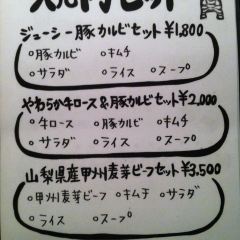 ジューシー豚カルビセット¥1,800
○豚カルビ ○キムチ
○サラダ ○ライス ○スープ
やわらか牛ロース&豚カルビセット¥2,000
○牛ロース ○豚カルビ ○キムチ
○サラダ ○ライス ○スープ
山梨県産甲州麦芽ビーフセット¥3,500
○甲州麦芽ビーフ ○キムチ ○サラダ
○ライス ○スープ